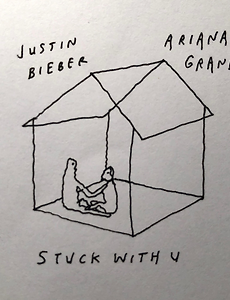 JUSTIN
BIEBER
ARIANA
GRAN
STUCK WITH U